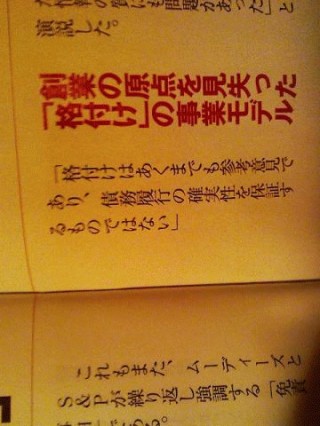 の質にも問題があった」と
演説した。
創業の原点を見失った
「格付け」の事業モデル
「格付けはあくまでも参考意見で
あり、債務履行の確実性を保証す
るものではない」
これもまた、ムーディーズと
S&Pが繰り返し強調する「免責
」である。